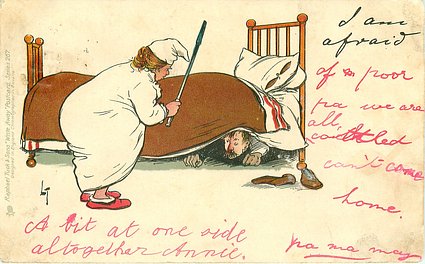 I am
afraid
of poor
pa we are
all,
can't come
home.
A bit at one side
altogether Annie.
pa ma may
Raphael Tuck & Sons' "Write Away" Postcard, Series 207.